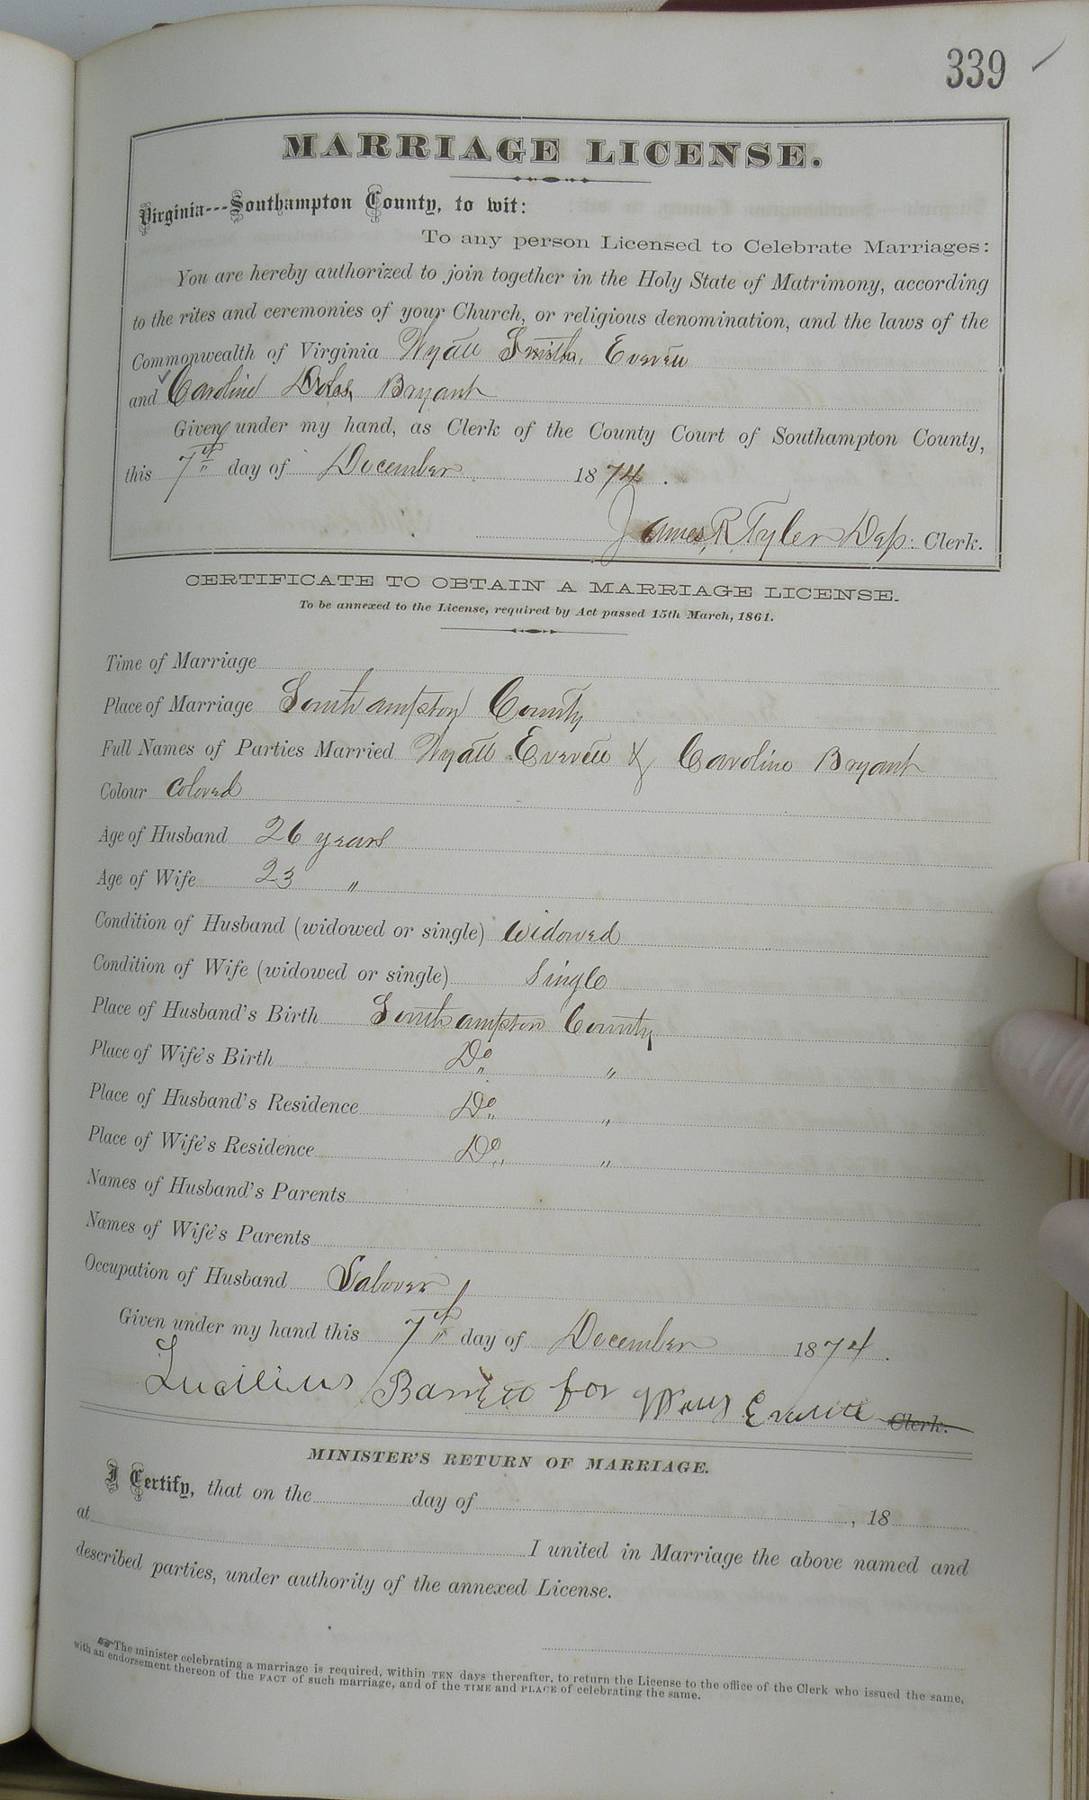 339
MARRIAGE LICENSE.
Virginia---Southampton County, to wit:
To any person Licensed to Celebrate Marriages:
You are hereby authorized to join together in the Holy State of Matrimony, according
to the rites and ceremonies of your Church, or religious denomination, and the laws of the
Commonwealth of Virginia Wyatt Smith, Everett
and Caroline Bryant
Given under my hand, as Clerk of the County Court of Southampton County,
this 7th day of December 1874.
James R Tyler Dep: Clerk.
CERTIFICATE TO OBTAIN A MARRIAGE LICENSE.
To be annexed to the License, required by Act passed 15th March, 1861.
Time of Marriage
Place of Marriage Southampton County
Full Names of Parties Married Wyatt Everett & Caroline Bryant
Colour Colored
Age of Husband 26 years
Age of Wife 23 "
Condition of Husband (widowed or single) Widowed
Condition of Wife (widowed or single) Single
Place of Husband's Birth Southampton County
Place of Wife's Birth Do "
Place of Husband's Residence Do "
Place of Wife's Residence Do "
Names of Husband's Parents
Names of Wife's Parents
Occupation of Husband Laborer
Given under my hand this 7th day of December 1874.
Barrett for Everett Clerk.
MINISTER'S RETURN OF MARRIAGE.
I Certify, that on the day of , 18
at I united in Marriage the above named and
described parties, under authority of the annexed License.
The minister celebrating a marriage is required, within TEN days thereafter, to return the License to the office of the Clerk who issued the same,
with an endorsement thereon of the FACT of such marriage, and of the TIME and PLACE of celebrating the same.